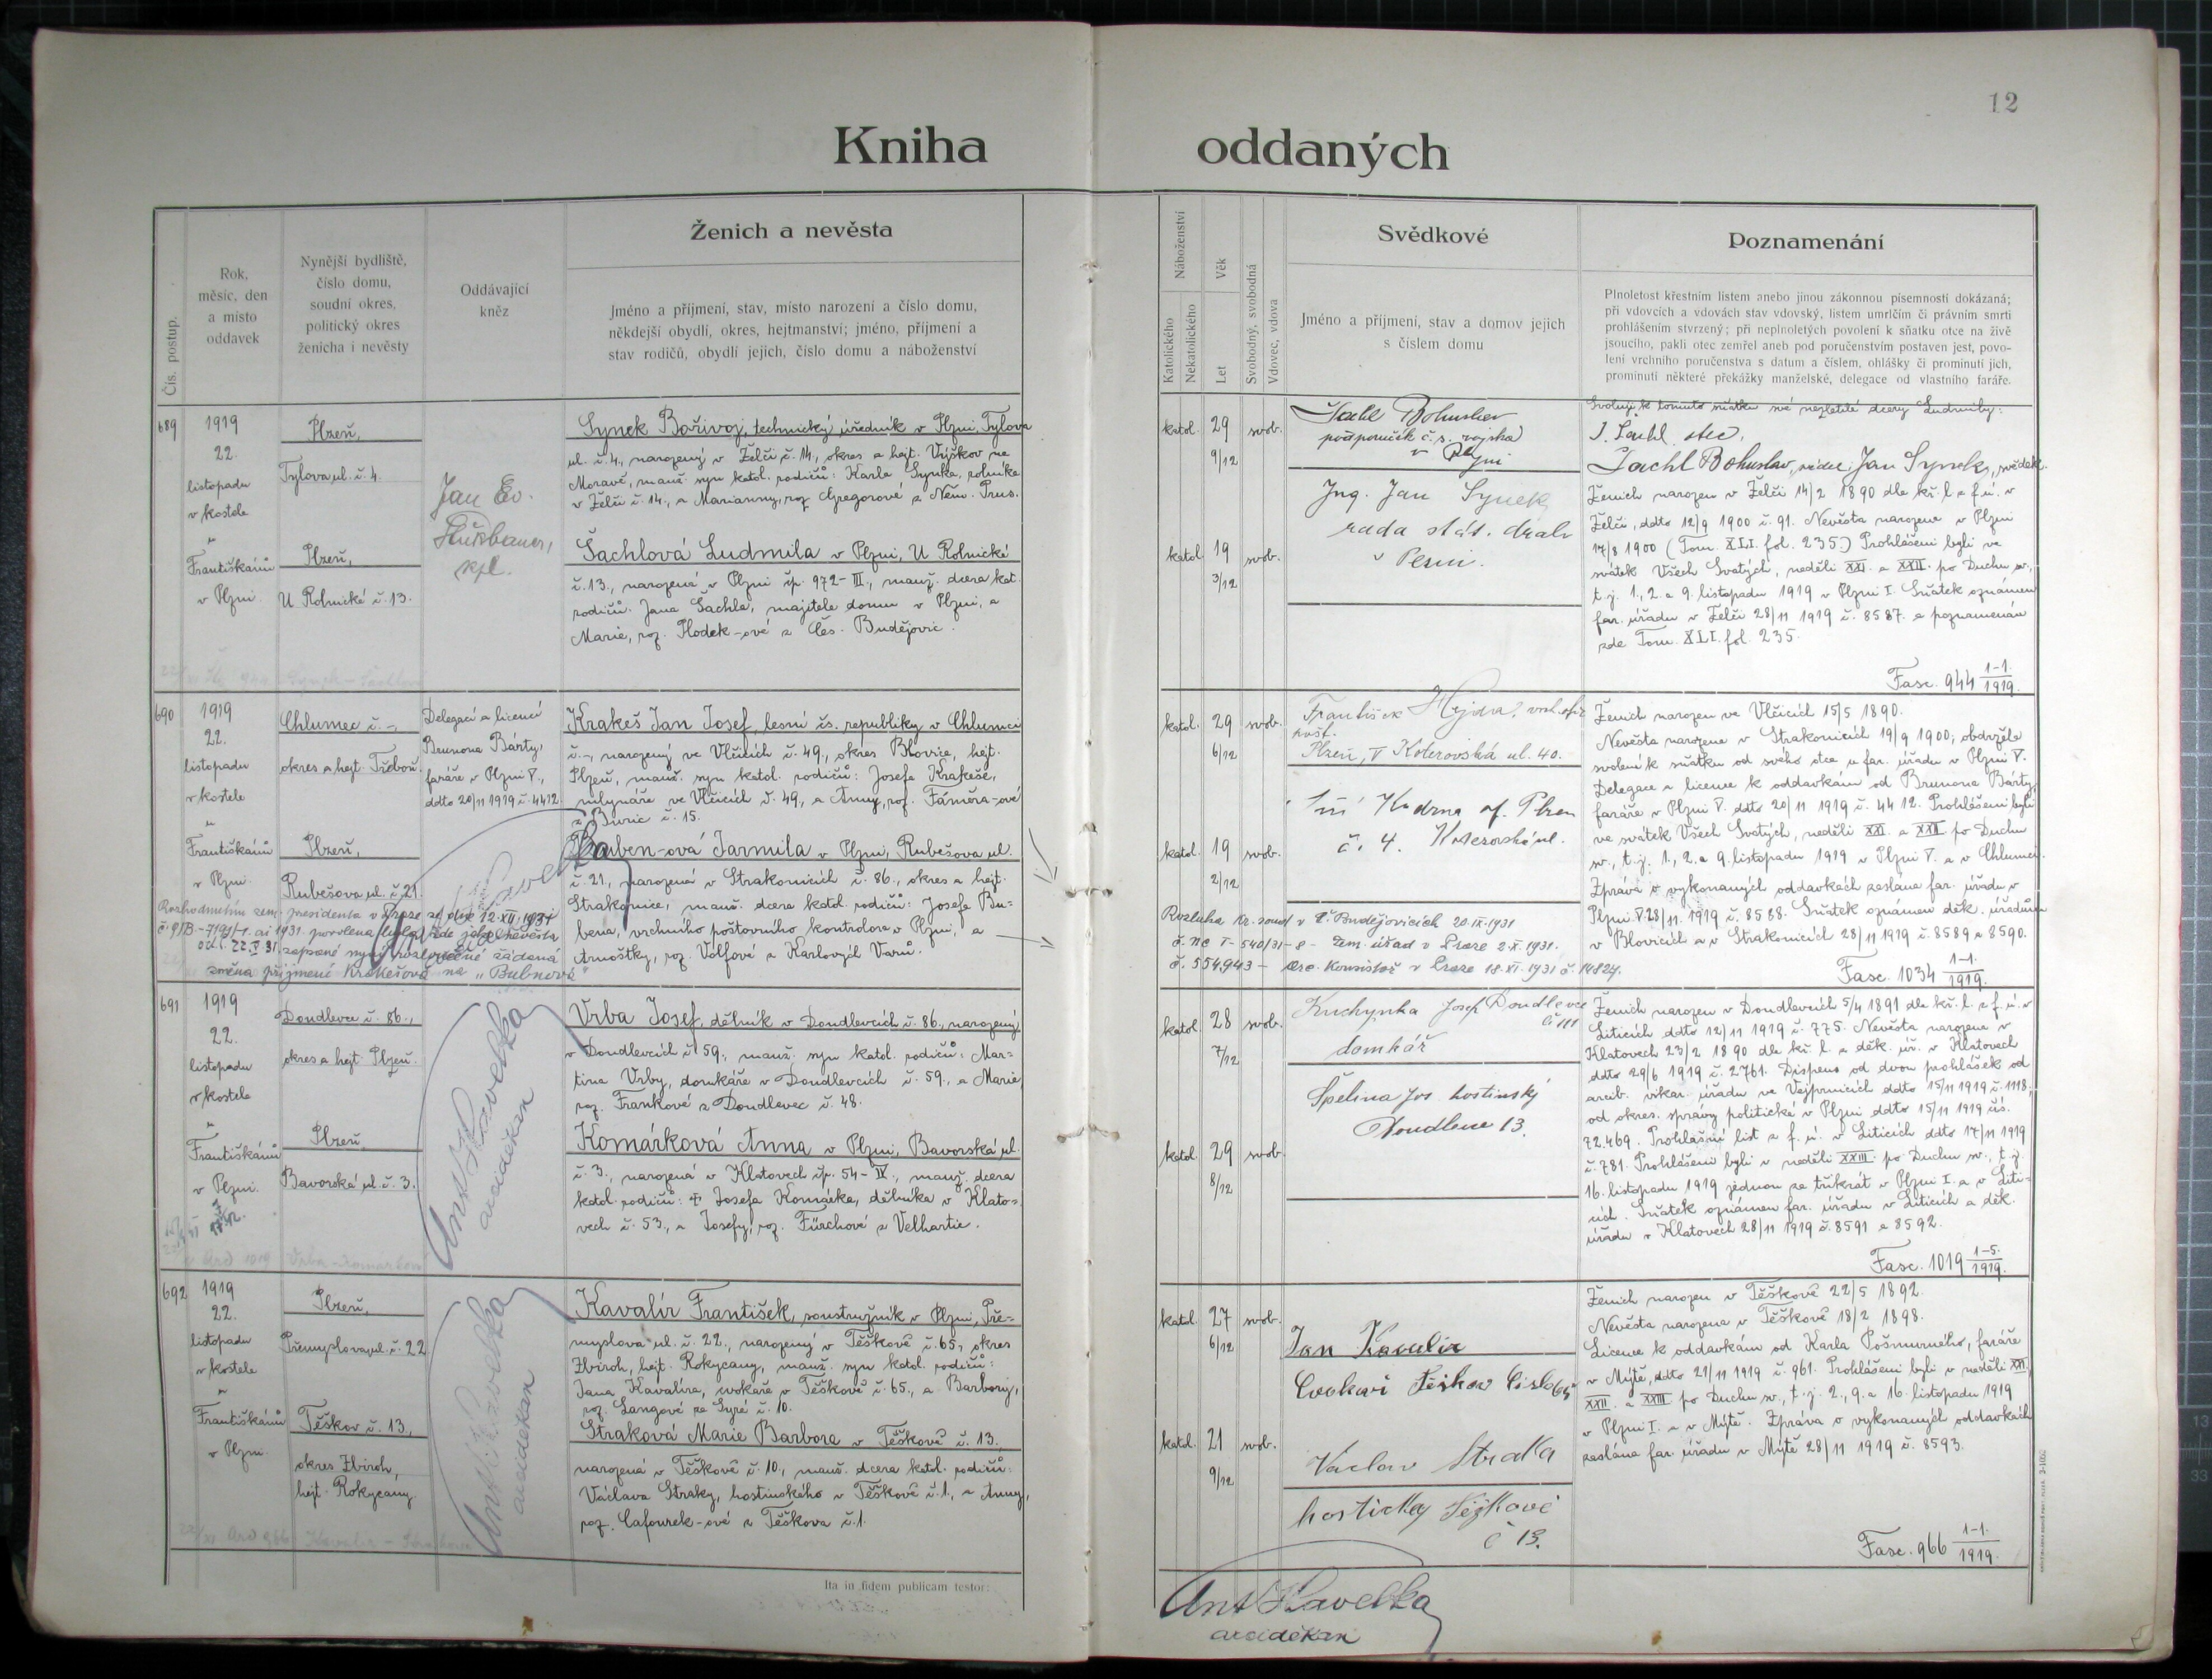 12
Kniha oddaných
Čís. postup.
Rok,
měsíc, den
a místo
oddavek
Nynější bydliště,
číslo domu,
soudní okres,
politický okres
ženicha i nevěsty
Oddávající
kněz
Ženich a nevěsta
Jméno a příjmení, stav, místo narození a číslo domu,
někdejší obydlí, okres, hejtmanství; jméno, příjmení a
stav rodičů, obydlí jejich, číslo domu a náboženství
Náboženství
Katolického
Nekatolického
Věk
Let
Svobodný, svobodná
Vdovec, vdova
Svědkové
Jméno a příjmení, stav a domov jejich
s číslem domu
Poznamenání
Plnoletost křestním listem anebo jinou zákonnou písemností dokázaná;
při vdovcích a vdovách stav vdovský, listem umrlčím či právním smrti
prohlášením stvrzený; při neplnoletých povolení k sňatku otce na živě
jsoucího, pakli otec zemřel aneb pod poručenstvím postaven jest, povo-
lení vrchního poručenstva s datum a číslem, ohlášky či prominutí jich,
prominutí některé překážky manželské, delegace od vlastního faráře.
689
1919
22.
listopadu
v kostele
u
Františkánů
v Plzni.
Plzeň,
Tylova ul. č. 4.
Plzeň,
U Rolnické č. 13.
Jan Ev.
kpl.
Synek Bořivoj, technický úředník v Plzni, Tylova
ul. č. 4., narozený v Želči č. 14., okres a hejt. Vyškov na
Moravě, manž. syn katol. rodičů: Karla Synka, rolníka
v Želči č. 14., a Marianny, roz. Gregorové z Něm. Prus.
Šachlová Ludmila v Plzni, U Rolnické
č. 13., narozená v Plzni čp. 972-III., manž. dcera kat.
rodičů: Jana Šachla, majitele domu v Plzni, a
Marie, roz. Hodek-ové z Čes. Budějovic.
katol. 29 svob.
9/12
katol. 19 svob.
3/12
Šachl Bohuslav
podporučík č. s. vojska
v Plzni
Ing. Jan Synek
rada stát. drah
v Plzni.
Svoluji k tomuto sňatku své nezletilé dcery Ludmily:
J. Šachl otec.
Šachl Bohuslav, svědek, Jan Synek, svědek.
Ženich narozen v Želči 14/2 1890 dle kř. l. z f. ú. v
Želči, ddto 12/9 1900 č. 91. Nevěsta narozena v Plzni
17/8 1900 (Tom. XLI. fol. 235.) Prohlášeni byli ve
svátek Všech Svatých, neděli XXI. a XXII. po Duchu sv.,
t. j. 1., 2. a 9. listopadu 1919 v Plzni I. Sňatek oznámen
far. úřadu v Želči 28/11 1919 č. 8587. a poznamenán
zde Tom. XLI. fol. 235.
Fasc. 944 1-1./1919.
690
1919
22.
listopadu
v kostele
u
Františkánů
v Plzni.
Chlumec č. -,
okres a hejt. Třeboň.
Plzeň,
Rubešova ul. č. 21.
Delegací a licencí
Brunona Bárty,
faráře v Plzni V.,
ddto 20/11 1919 č. 4412.
Krakeš Jan Josef, lesní čs. republiky v Chlumci
č. -, narozený ve Vlčicích č. 49., okres Blovice, hejt.
Plzeň, manž. syn katol. rodičů: Josefa Krakeše,
mlynáře ve Vlčicích č. 49., a Anny, roz. Faměra-ové
z Buric č. 15.
Buben-ová Jarmila v Plzni, Rubešova ul.
č. 21., narozená v Strakonicích č. 86., okres a hejt.
Strakonice, manž. dcera katol. rodičů: Josefa Bu-
bena, vrchního poštovního kontrolora v Plzni, a
Arnoštky, roz. Volfové z Karlových Varů.
Rozhodnutím zem. presidenta v Praze ze dne 12.XII.1931
změna příjmení Krakešová na „Bubnová"
katol. 29 svob.
6/12
katol. 19 svob.
2/12
František Hejda, vrch. ofic.
pošt.
Plzeň, V Koterovská ul. 40.
Kudrna of. Plzeň
č. 4. Koterovská ul.
Rozluka kr. soud v Č. Budějovicích 20.IX.1931
č. nc I-540/31-8 - Zem. úřad v Praze 2.X.1931.
č. 554943 - Arc. Konsistoř v Praze 18.XI.1931 č. 14824.
Ženich narozen ve Vlčicích 15/5 1890.
Nevěsta narozena v Strakonicích 19/9 1900; obdržela
svolení k sňatku od svého otce u far. úřadu v Plzni V.
Delegace a licence k oddavkám od Brunona Bárty,
faráře v Plzni V. ddto 20/11 1919 č. 4412. Prohlášeni byli
ve svátek Všech Svatých, neděli XXI. a XXII. po Duchu
sv., t. j. 1., 2. a 9. listopadu 1919 v Plzni V. a v Chlumci.
Zpráva o vykonaných oddavkách zaslána far. úřadu v
Plzni V. 28/11 1919 č. 8588. Sňatek oznámen děk. úřadům
v Blovicích a v Strakonicích 28/11 1919 č. 8589 a 8590.
Fasc. 1034 1-1./1919.
691
1919
22.
listopadu
v kostele
u
Františkánů
v Plzni.
Doudlevce č. 86.,
okres a hejt. Plzeň.
Plzeň,
Bavorská ul. č. 3.
Ant. Havelka
arciděkan
Vrba Josef, dělník v Doudlevcích č. 86., narozený
v Doudlevcích č. 59., manž. syn katol. rodičů: Mar-
tina Vrby, domkáře v Doudlevcích č. 59., a Marie,
roz. Frankové z Doudlevec č. 48.
Komárková Anna v Plzni, Bavorská ul.
č. 3., narozená v Klatovech čp. 54-IV., manž. dcera
katol. rodičů: † Josefa Komárka, dělníka v Klato-
vech č. 53., a Josefy, roz. Fürchové z Velhartic.
katol. 28 svob.
7/12
katol. 29 svob.
8/12
Kuchynka Josef Doudlevce
č 111
domkář
Špelina Jos. hostinský
Doudlevce 13.
Ženich narozen v Doudlevcích 5/4 1891 dle kř. l. z f. ú. v
Liticích ddto 12/11 1919 č. 775. Nevěsta narozena v
Klatovech 23/2 1890 dle kř. l. z děk. úř. v Klatovech
ddto 29/6 1919 č. 2761. Dispens od dvou prohlášek od
arcib. vikar. úřadu ve Vejprnicích ddto 15/11 1919 č. 1118;
od okres. správy politické v Plzni ddto 15/11 1919 čís.
72.469. Prohlašní list z f. ú. v Liticích ddto 17/11 1919
č. 781. Prohlášeni byli v neděli XXIII. po Duchu sv., t. j.
16. listopadu 1919 jednou za třikrát v Plzni I. a v Liti-
cích. Sňatek oznámen far. úřadu v Liticích a děk.
úřadu v Klatovech 28/11 1919 č. 8591 a 8592.
Fasc. 1019 1-5./1919.
692
1919
22.
listopadu
v kostele
u
Františkánů
v Plzni.
Plzeň,
Přemyslova ul. č. 22
Těškov č. 13.,
okres Zbiroh,
hejt. Rokycany.
Ant. Havelka
arciděkan
Kavalír František, soustružník v Plzni, Pře-
myslova ul. č. 22., narozený v Těškově č. 65., okres
Zbiroh, hejt. Rokycany, manž. syn katol. rodičů:
Jana Kavalíra, cvokaře v Těškově č. 65., a Barbory,
roz. Langové ze Syré č. 10.
Straková Marie Barbora v Těškově č. 13.
narozená v Těškově č. 10., manž. dcera katol. rodičů:
Václava Straky, hostinského v Těškově č. 1., a Anny,
roz. Cafourek-ové z Těškova č. 1.
katol. 27 svob.
6/12
katol. 21 svob.
9/12
Jan Kavalír
Cvokař Těškov Číslo 65
Vaclav Straka
Těškově
č 13.
Ženich narozen v Těškově 22/5 1892.
Nevěsta narozena v Těškově 18/2 1898.
Licence k oddavkám od Karla Pošmurného, faráře
v Mýtě, ddto 21/11 1919 č. 961. Prohlášeni byli v neděli XXI.,
XXII. a XXIII. po Duchu sv., t. j. 2., 9. a 16. listopadu 1919
v Plzni I. a v Mýtě. Zpráva o vykonaných oddavkách
zaslána far. úřadu v Mýtě 28/11 1919 č. 8593.
Fasc. 966 1-1./1919.
Ita in fidem publicam testor:
Ant Havelka
arciděkan